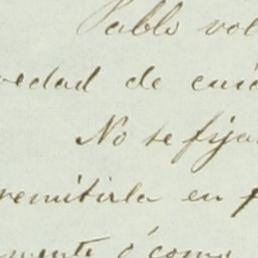 Pablo vol
edad de cuid
No se fijar
remitirla en f
mente ó como